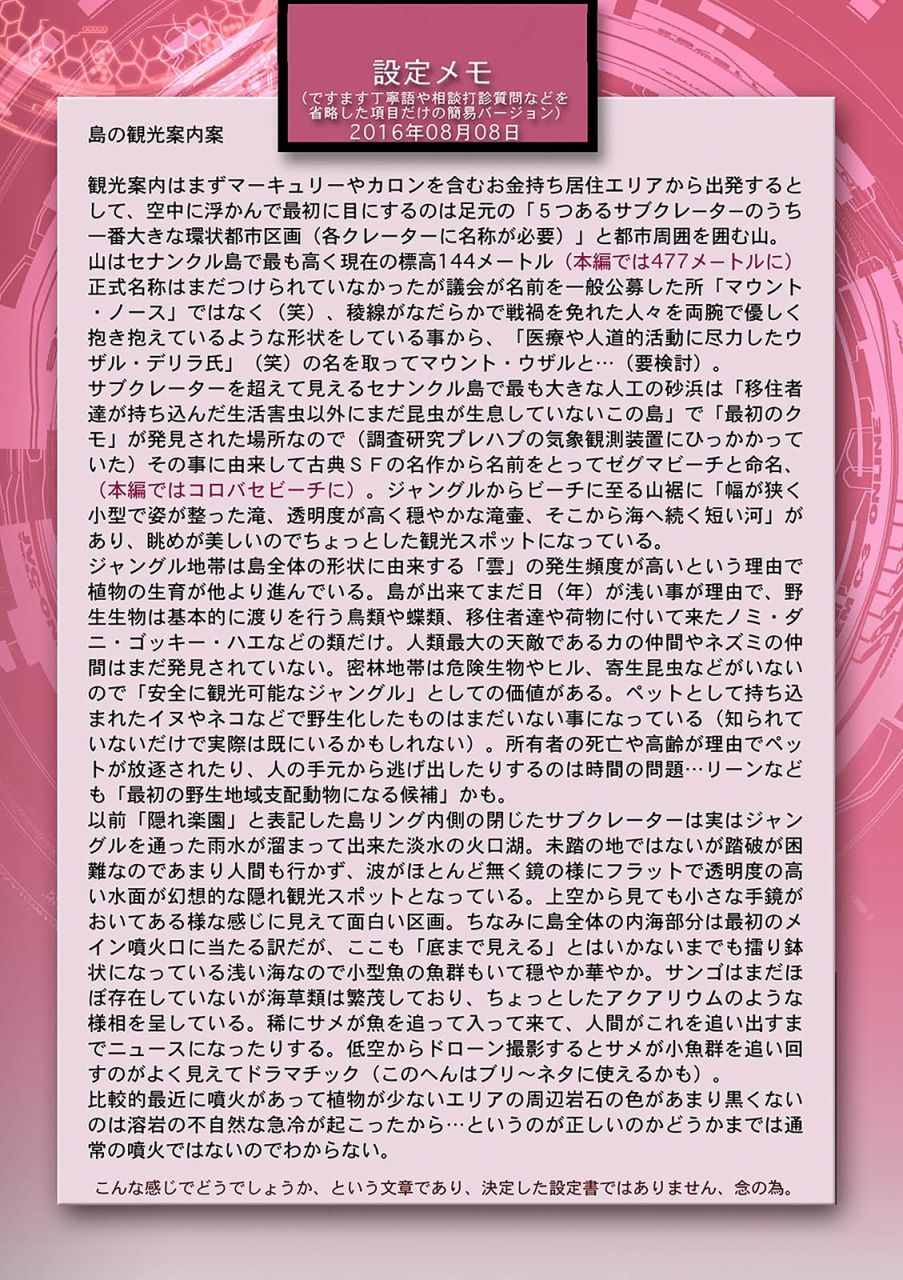 設定メモ
(ですます丁寧語や相談打診質問などを
省略した項目だけの簡易バージョン)
2016年08月08日
島の観光案内案
観光案内はまずマーキュリーやカロンを含むお金持ち居住エリアから出発すると
して、空中に浮かんで最初に目にするのは足元の「５つあるサブクレーターのうち
一番大きな環状都市区画（各クレーターに名称が必要）」と都市周囲を囲む山。
山はセナンクル島で最も高く現在の標高144メートル（本編では477メートルに）
正式名称はまだつけられていなかったが議会が名前を一般公募した所「マウント
・ノース」ではなく（笑）、稜線がなだらかで戦禍を免れた人々を両腕で優しく
抱き抱えているような形状をしている事から、「医療や人道的活動に尽力したウ
ザル・デリラ氏」（笑）の名を取ってマウント・ウザルと…（要検討）。
サブクレーターを超えて見えるセナンクル島で最も大きな人工の砂浜は「移住者
達が持ち込んだ生活害虫以外にまだ昆虫が生息していないこの島」で「最初のク
モ」が発見された場所なので（調査研究プレハブの気象観測装置にひっかかって
いた）その事に由来して古典ＳＦの名作から名前をとってゼグマビーチと命名、
（本編ではコロバセビーチに）。ジャングルからビーチに至る山裾に「幅が狭く
小型で姿が整った滝、透明度が高く穏やかな滝壷、そこから海へ続く短い河」が
あり、眺めが美しいのでちょっとした観光スポットになっている。
ジャングル地帯は島全体の形状に由来する「雲」の発生頻度が高いという理由で
植物の生育が他より進んでいる。島が出来てまだ日（年）が浅い事が理由で、野
生生物は基本的に渡りを行う鳥類や蝶類、移住者達や荷物に付いて来たノミ・ダ
ニ・ゴッキー・ハエなどの類だけ。人類最大の天敵であるカの仲間やネズミの仲
間はまだ発見されていない。密林地帯は危険生物やヒル、寄生昆虫などがいない
ので「安全に観光可能なジャングル」としての価値がある。ペットとして持ち込
まれたイヌやネコなどで野生化したものはまだいない事になっている（知られて
いないだけで実際は既にいるかもしれない）。所有者の死亡や高齢が理由でペッ
トが放逐されたり、人の手元から逃げ出したりするのは時間の問題…リーンなど
も「最初の野生地域支配動物になる候補」かも。
以前「隠れ楽園」と表記した島リング内側の閉じたサブクレーターは実はジャン
グルを通った雨水が溜まって出来た淡水の火口湖。未踏の地ではないが踏破が困
難なのであまり人間も行かず、波がほとんど無く鏡の様にフラットで透明度の高
い水面が幻想的な隠れ観光スポットとなっている。上空から見ても小さな手鏡が
おいてある様な感じに見えて面白い区画。ちなみに島全体の内海部分は最初のメ
イン噴火口に当たる訳だが、ここも「底まで見える」とはいかないまでも擂り鉢
状になっている浅い海なので小型魚の魚群もいて穏やか華やか。サンゴはまだほ
ぼ存在していないが海草類は繁茂しており、ちょっとしたアクアリウムのような
様相を呈している。稀にサメが魚を追って入って来て、人間がこれを追い出すま
でニュースになったりする。低空からドローン撮影するとサメが小魚群を追い回
すのがよく見えてドラマチック（このへんはブリ〜ネタに使えるかも）。
比較的最近に噴火があって植物が少ないエリアの周辺岩石の色があまり黒くない
のは溶岩の不自然な急冷が起こったから…というのが正しいのかどうかまでは通
常の噴火ではないのでわからない。
こんな感じでどうでしょうか、という文章であり、決定した設定書ではありません、念の為。
ONLINE